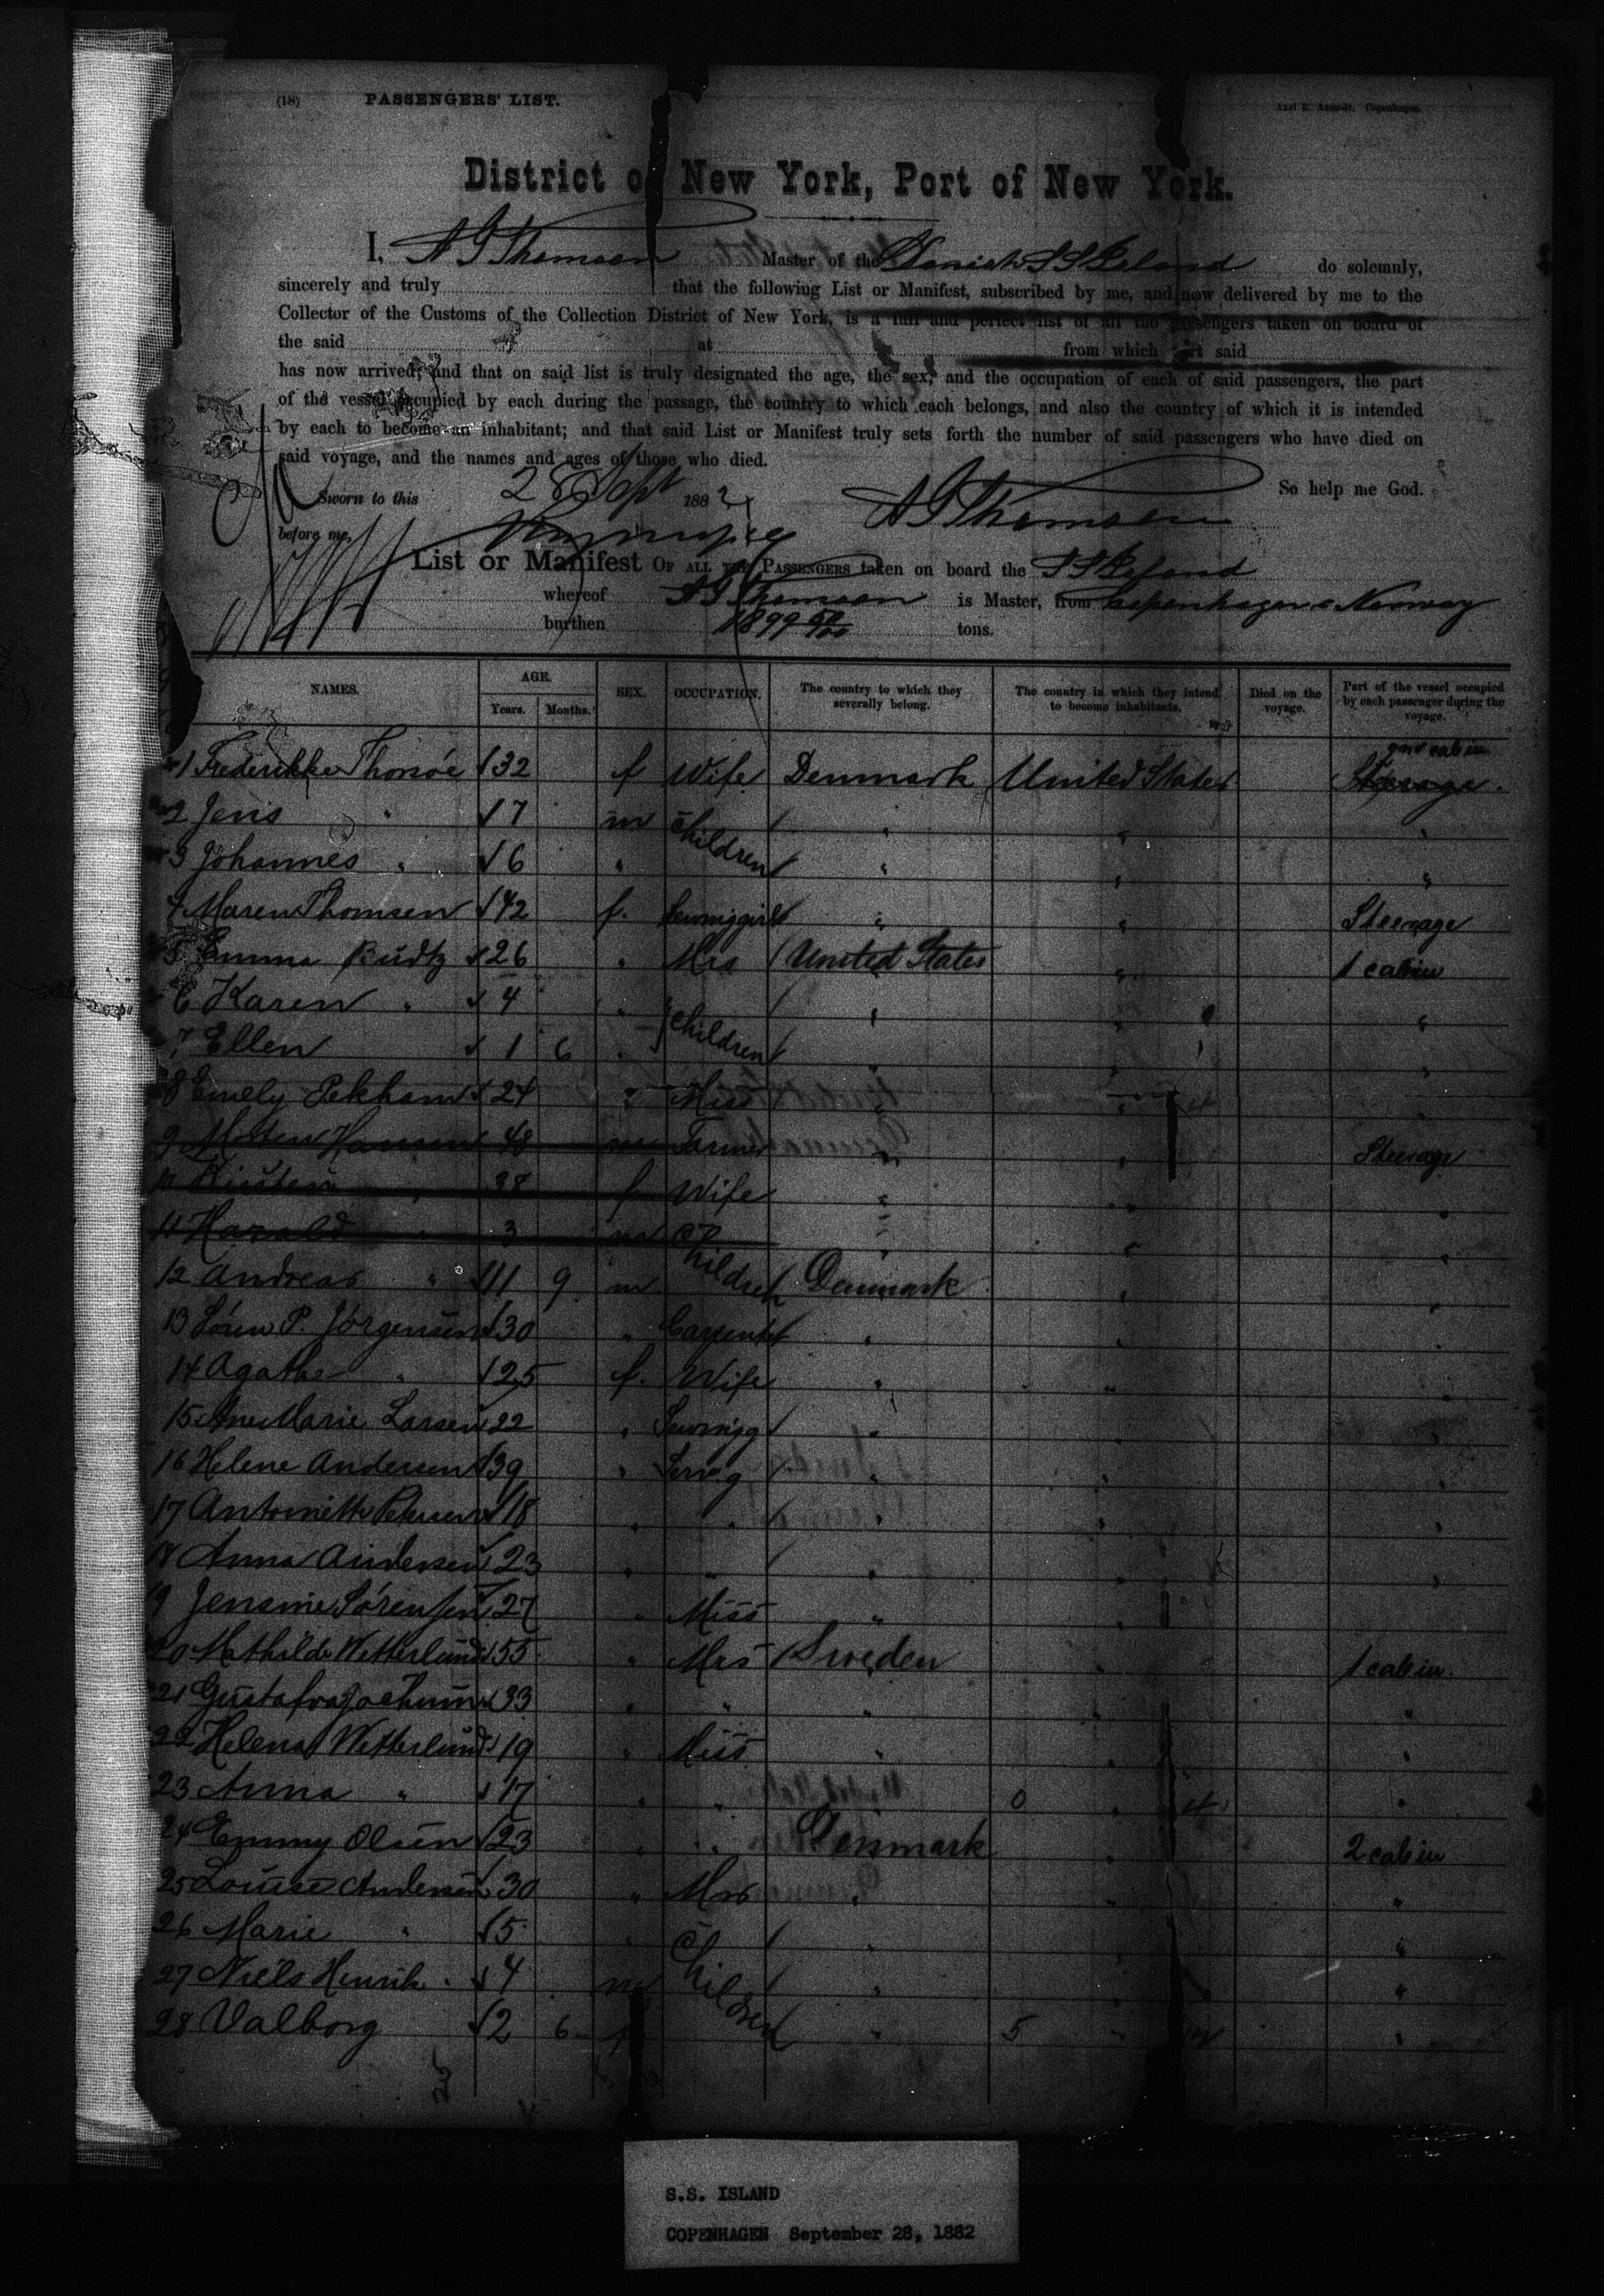 (18) PASSENGERS' LIST.
District of New York, Port of New York.
I, A G Thomsen Master of the Danish S S Island do solemnly,
sincerely and truly that the following List or Manifest, subscribed by me, and now delivered by me to the
Collector of the Customs of the Collection District of New York, is a full and perfect list of all the passengers taken on board of
the said at from which port said
has now arrived; and that on said list is truly designated the age, the sex, and the occupation of each of said passengers, the part
of the vessel occupied by each during the passage, the country to which each belongs, and also the country of which it is intended
by each to become an inhabitant; and that said List or Manifest truly sets forth the number of said passengers who have died on
said voyage, and the names and ages of those who died.
So help me God.
Sworn to this 28 Sept 1882 A G Thomsen
before me,
List or Manifest OF ALL THE PASSENGERS taken on board the S S Island
whereof A G Thomsen is Master, from Copenhagen & Norway
burthen 1899 tons.
NAMES. AGE. Years. Months. SEX. OCCUPATION. The country to which they severally belong. The country in which they intend to become inhabitants. Died on the voyage. Part of the vessel occupied by each passenger during the voyage.
1 Frederikke Thorsöe 32 f Wife Denmark United States 2nd cabin Steerage
2 Jens " 17 m Children " " "
3 Johannes " 6 " " " "
4 Maren Thomsen 42 f. Sewinggirl " " Steerage
5 Emma Budtz 26 " Mrs United States " 1 cabin
6 Karen " 4 " Children " " "
7 Ellen 1 6 " " " "
8 Emely Pekham 24 " Miss " " "
9 Morten Hansen 48 m Farmer " " Steerage
10 Kirsten " 38 f Wife " " "
11 Harald " 3 m Children " " "
12 Andreas " 11 9 m Denmark " "
13 Sören P. Jörgensen 30 " Carpenter " " "
14 Agathe " 25 f. Wife " " "
15 Ane Marie Larsen 22 " Sewingg " " "
16 Helene Andersen 39 " Serv.g " " "
17 Antoinette Petersen 18 " " " " "
18 Anna Andersen 23 " " " " "
19 Jensine Sörensen 27 " Miss " " "
20 Mathilde Wetterlund 55 " Mrs Sweden " 1 cabin
21 Gustafva Jochum 33 " " " " "
22 Helena Wetterlund 19 " Miss " " "
23 Anna " 17 " " 0 " "
24 Emmy Olsen 23 " " Denmark " 2 cabin
25 Louise Andersen 30 " Mrs " " "
26 Marie " 5 " Children " " "
27 Niels Henrik " 4 m " " "
28 Valborg 2 6 f " 5 " "
S.S. ISLAND
COPENHAGEN September 28, 1882